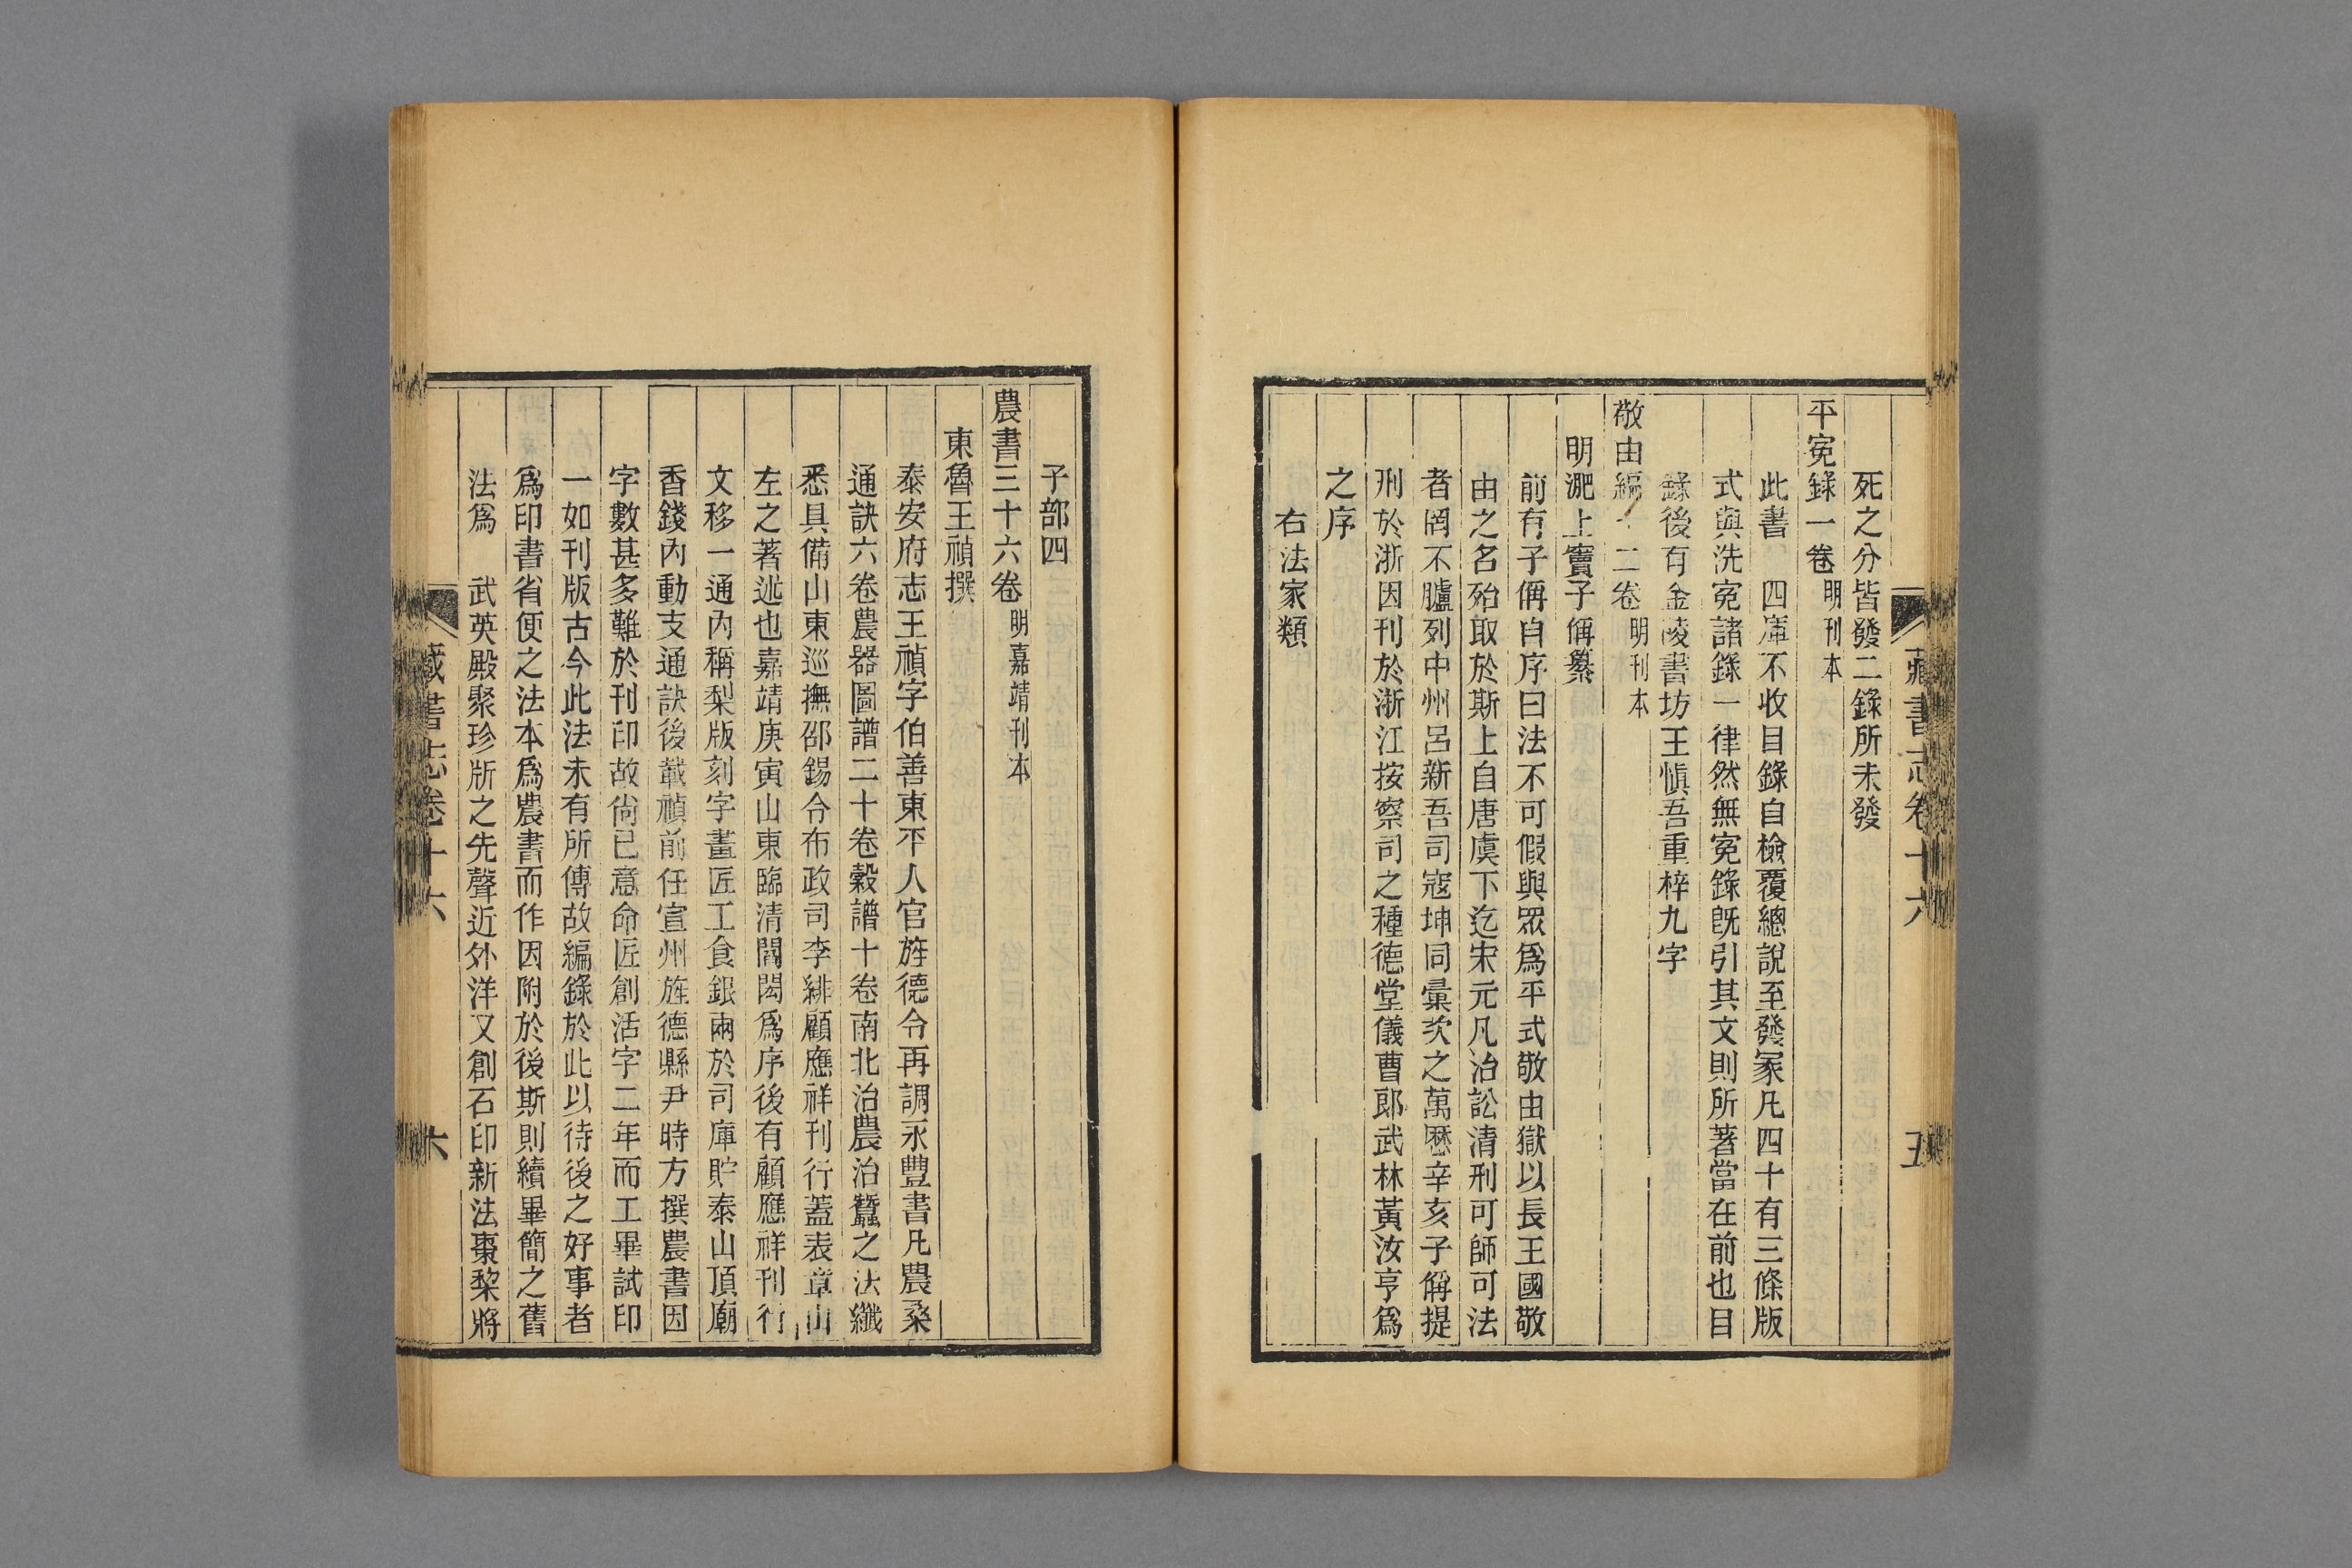 藏書志卷十六
五
死之分皆發二錄所未發
平冤錄一卷明刊本
此書 四庫不收目錄自檢覆總說至發冢凡四十有三條版
式與洗冤諸錄一律然無冤錄旣引其文則所著當在前也目
錄後有金陵書坊王愼吾重梓九字
敬由編十二卷明刊本
明淝上竇子偁纂
前有子偁自序曰法不可假與眾爲平式敬由獄以長王國敬
由之名殆取於斯上自唐虞下迄宋元凡治訟清刑可師可法
者罔不臚列中州呂新吾司寇坤同彙次之萬厯辛亥子偁提
刑於浙因刊於浙江按察司之種德堂儀曹郎武林黃汝亨爲
之序
右法家類
子部四
農書三十六卷明嘉靖刊本
東魯王禎撰
泰安府志王禎字伯善東平人官旌德令再調永豐書凡農桑
通訣六卷農器圖譜二十卷穀譜十卷南北治農治蠶之法纖
悉具備山東巡撫邵錫令布政司李緋顧應祥刊行蓋表章山
左之著述也嘉靖庚寅山東臨清閻閎爲序後有顧應祥刊行
文移一通內稱梨版刻字畫匠工食銀兩於司庫貯泰山頂廟
香錢內動支通訣後載禎前任宣州旌德縣尹時方撰農書因
字數甚多難於刊印故尙已意命匠創活字二年而工畢試印
一如刊版古今此法未有所傳故編錄於此以待後之好事者
爲印書省便之法本爲農書而作因附於後斯則續畢簡之舊
法爲 武英殿聚珍版之先聲近外洋又創石印新法棗棃將
藏書志卷十六
六